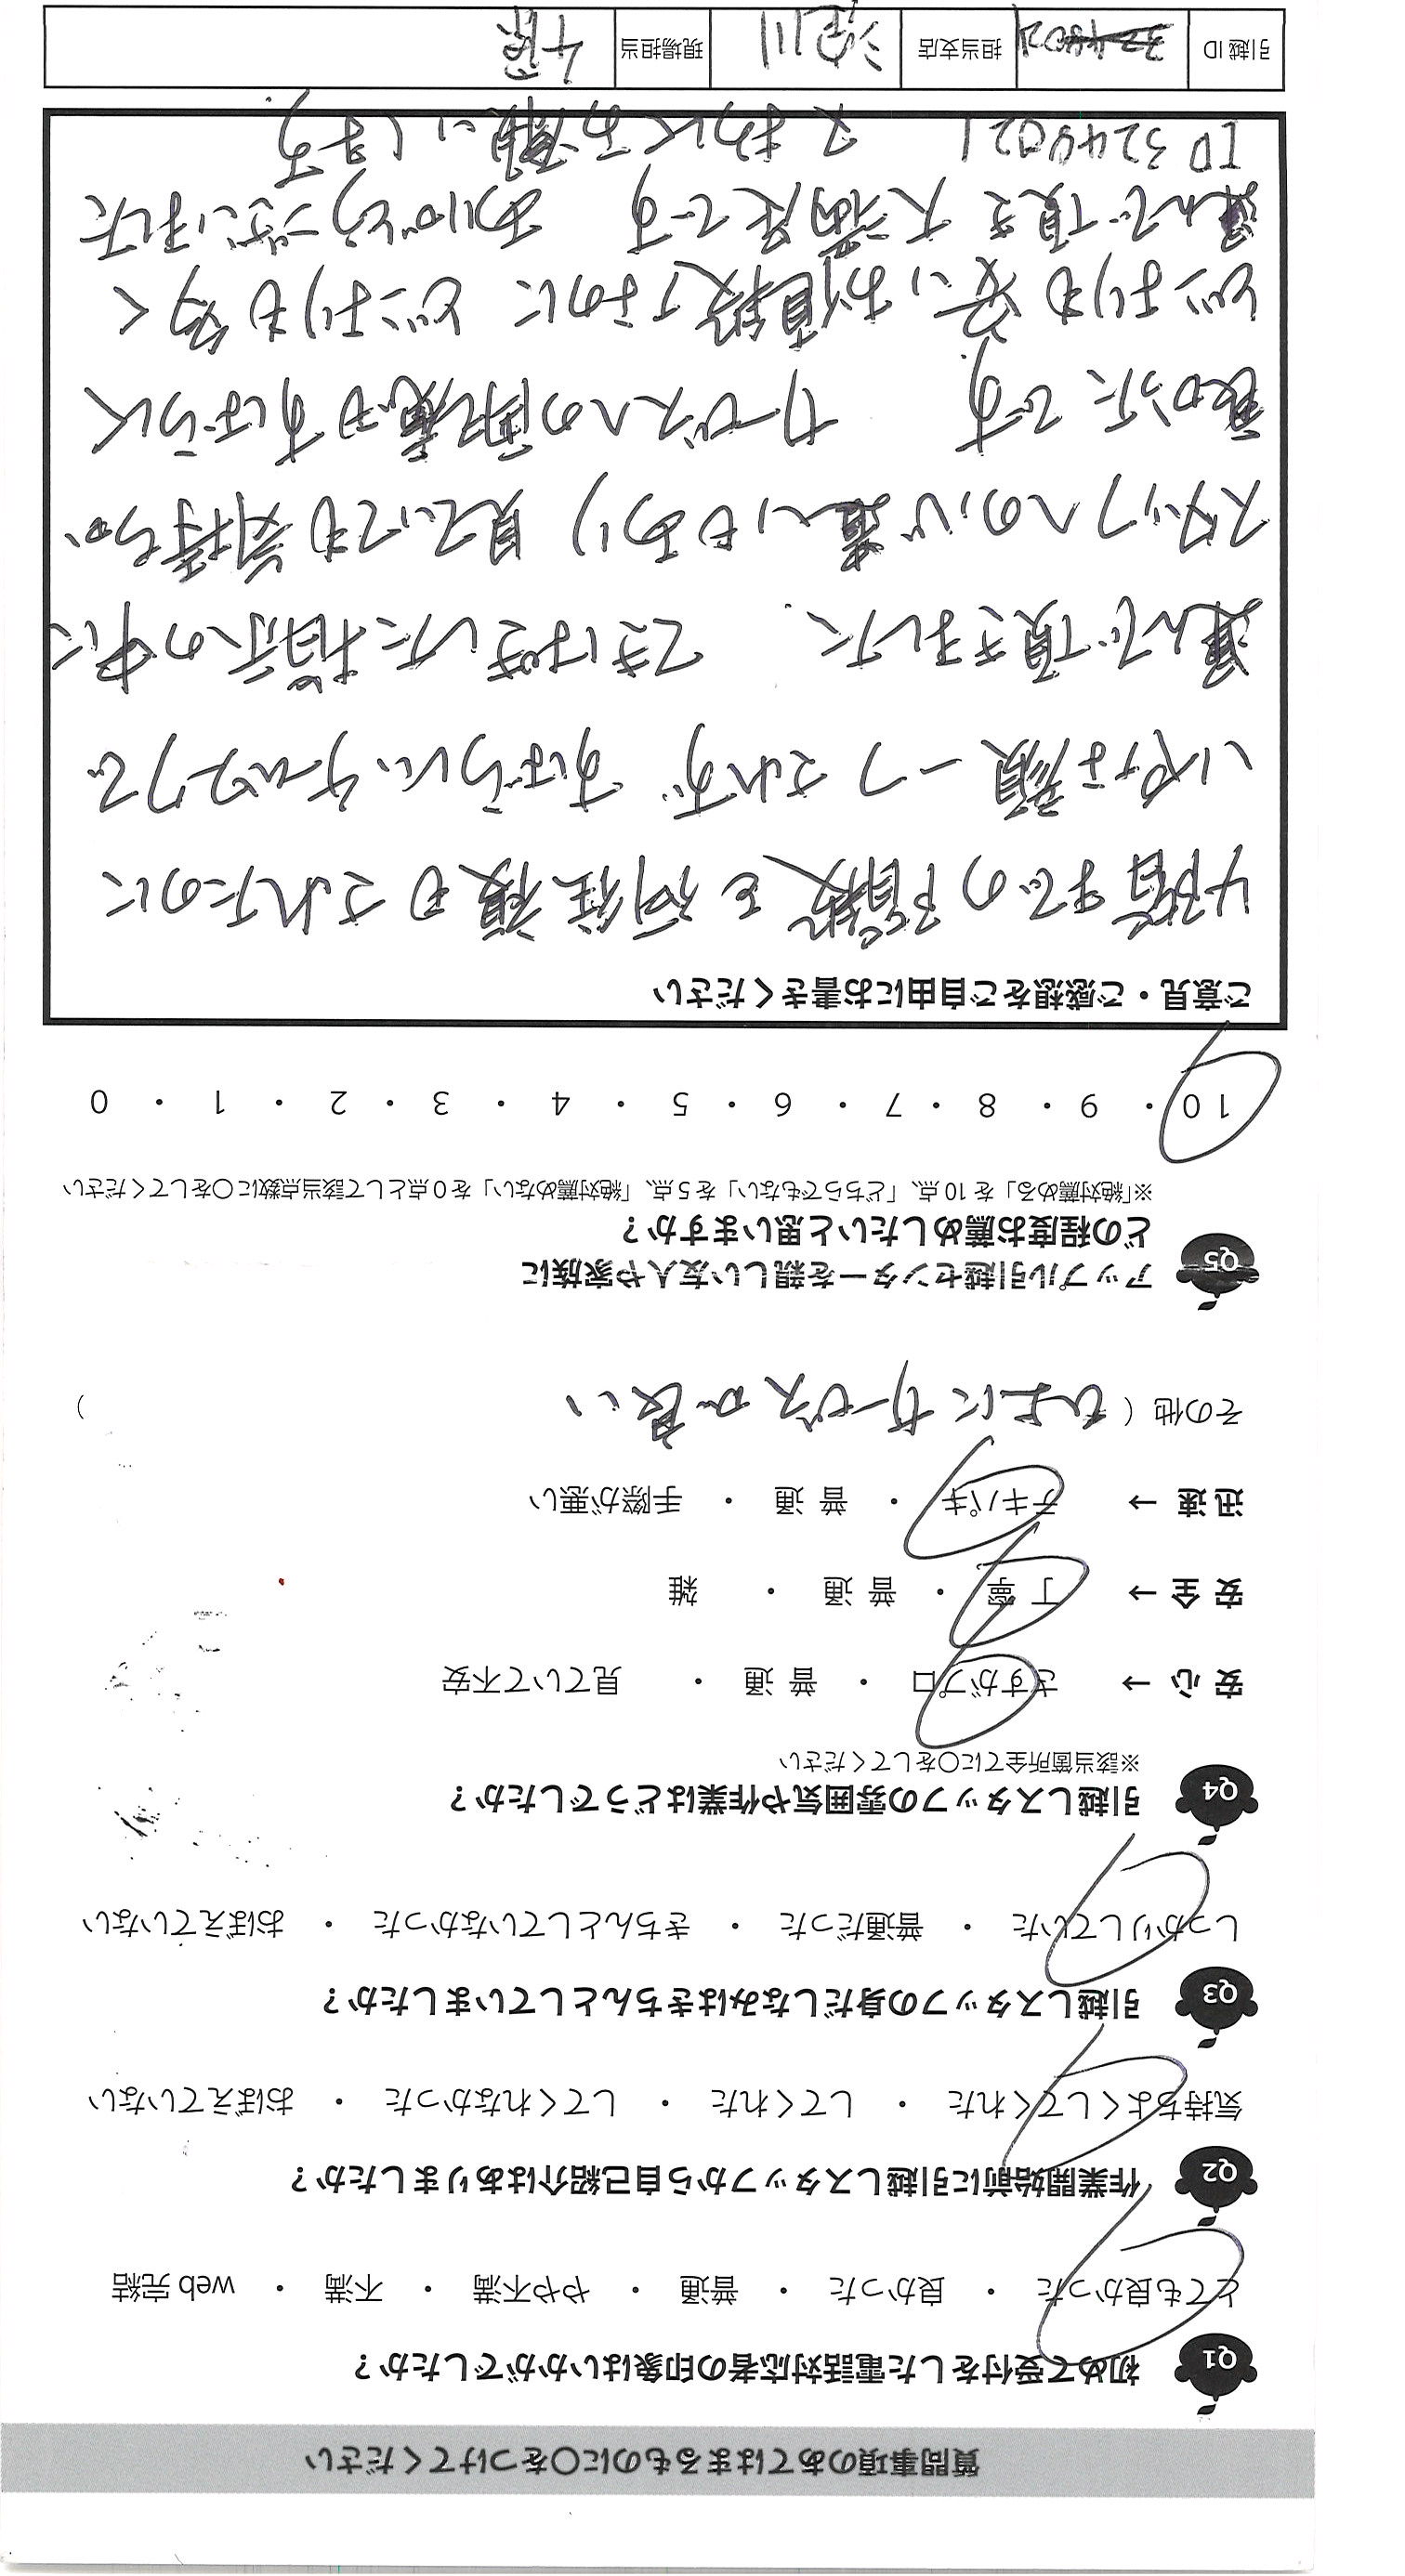 質問事項のあてはまるものに〇をつけてください
Q1 初めて受付をした電話対応者の印象はいかがでしたか？
とても良かった ・ 良かった ・ 普通 ・ やや不満 ・ 不満 ・ web 完結
Q2 作業開始前に引越しスタッフから自己紹介はありましたか？
気持ちよくしてくれた ・ してくれた ・ してくれなかった ・ おぼえていない
Q3 引越しスタッフの身だしなみはきちんとしていましたか？
しっかりしていた ・ 普通だった ・ きちんとしていなかった ・ おぼえていない
Q4 引越しスタッフの雰囲気や作業はどうでしたか？
※該当箇所全てに〇をしてください
安心 → さすがプロ ・ 普通 ・ 見ていて不安
安全 → 丁寧 ・ 普通 ・ 雑
迅速 → テキパキ ・ 普通 ・ 手際が悪い
その他 ( ひよにサービスが良い )
Q5 アップル引越センターを親しい友人や家族に
どの程度お薦めしたいと思いますか？
※「絶対薦める」を 10 点、「どちらでもない」を 5 点、「絶対薦めない」を 0 点として該当点数に〇をしてください
10 ・ 9 ・ 8 ・ 7 ・ 6 ・ 5 ・ 4 ・ 3 ・ 2 ・ 1 ・ 0
ご意見・ご感想をご自由にお書きください
4階までの階段を何往復もされたのに
いやな顔一つされず すばらしいチームワークで
運んで頂きました。 てきぱきした指示の中に
スタッフへの心遣いもあり 見ていても気持ちが
良かったです。 サービスへの配慮もすばらしく
どこよりも安いお値段なのに どこよりも多く
運んで頂き大満足です ありがとうございました
ID 3248021 又 お願いします。
引越 ID 3248021 担当支店 淀川 現場担当